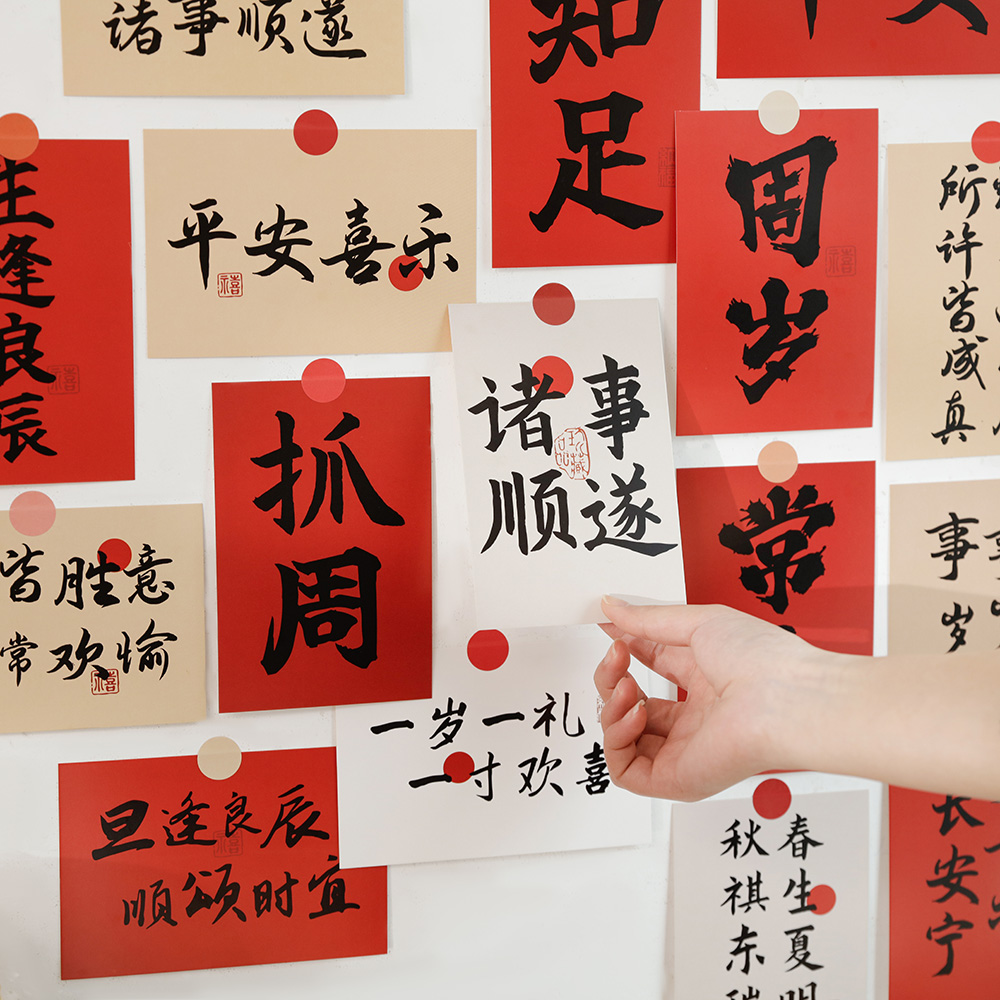 诸事顺遂
知足
周岁
平安喜乐
生逢良辰
所许皆成真
抓周
诸事
顺遂
常
皆胜意
常欢愉
事
岁
一岁一礼
一寸欢喜
旦逢良辰
顺颂时宜
春生夏明
秋祺冬瑞
长安宁